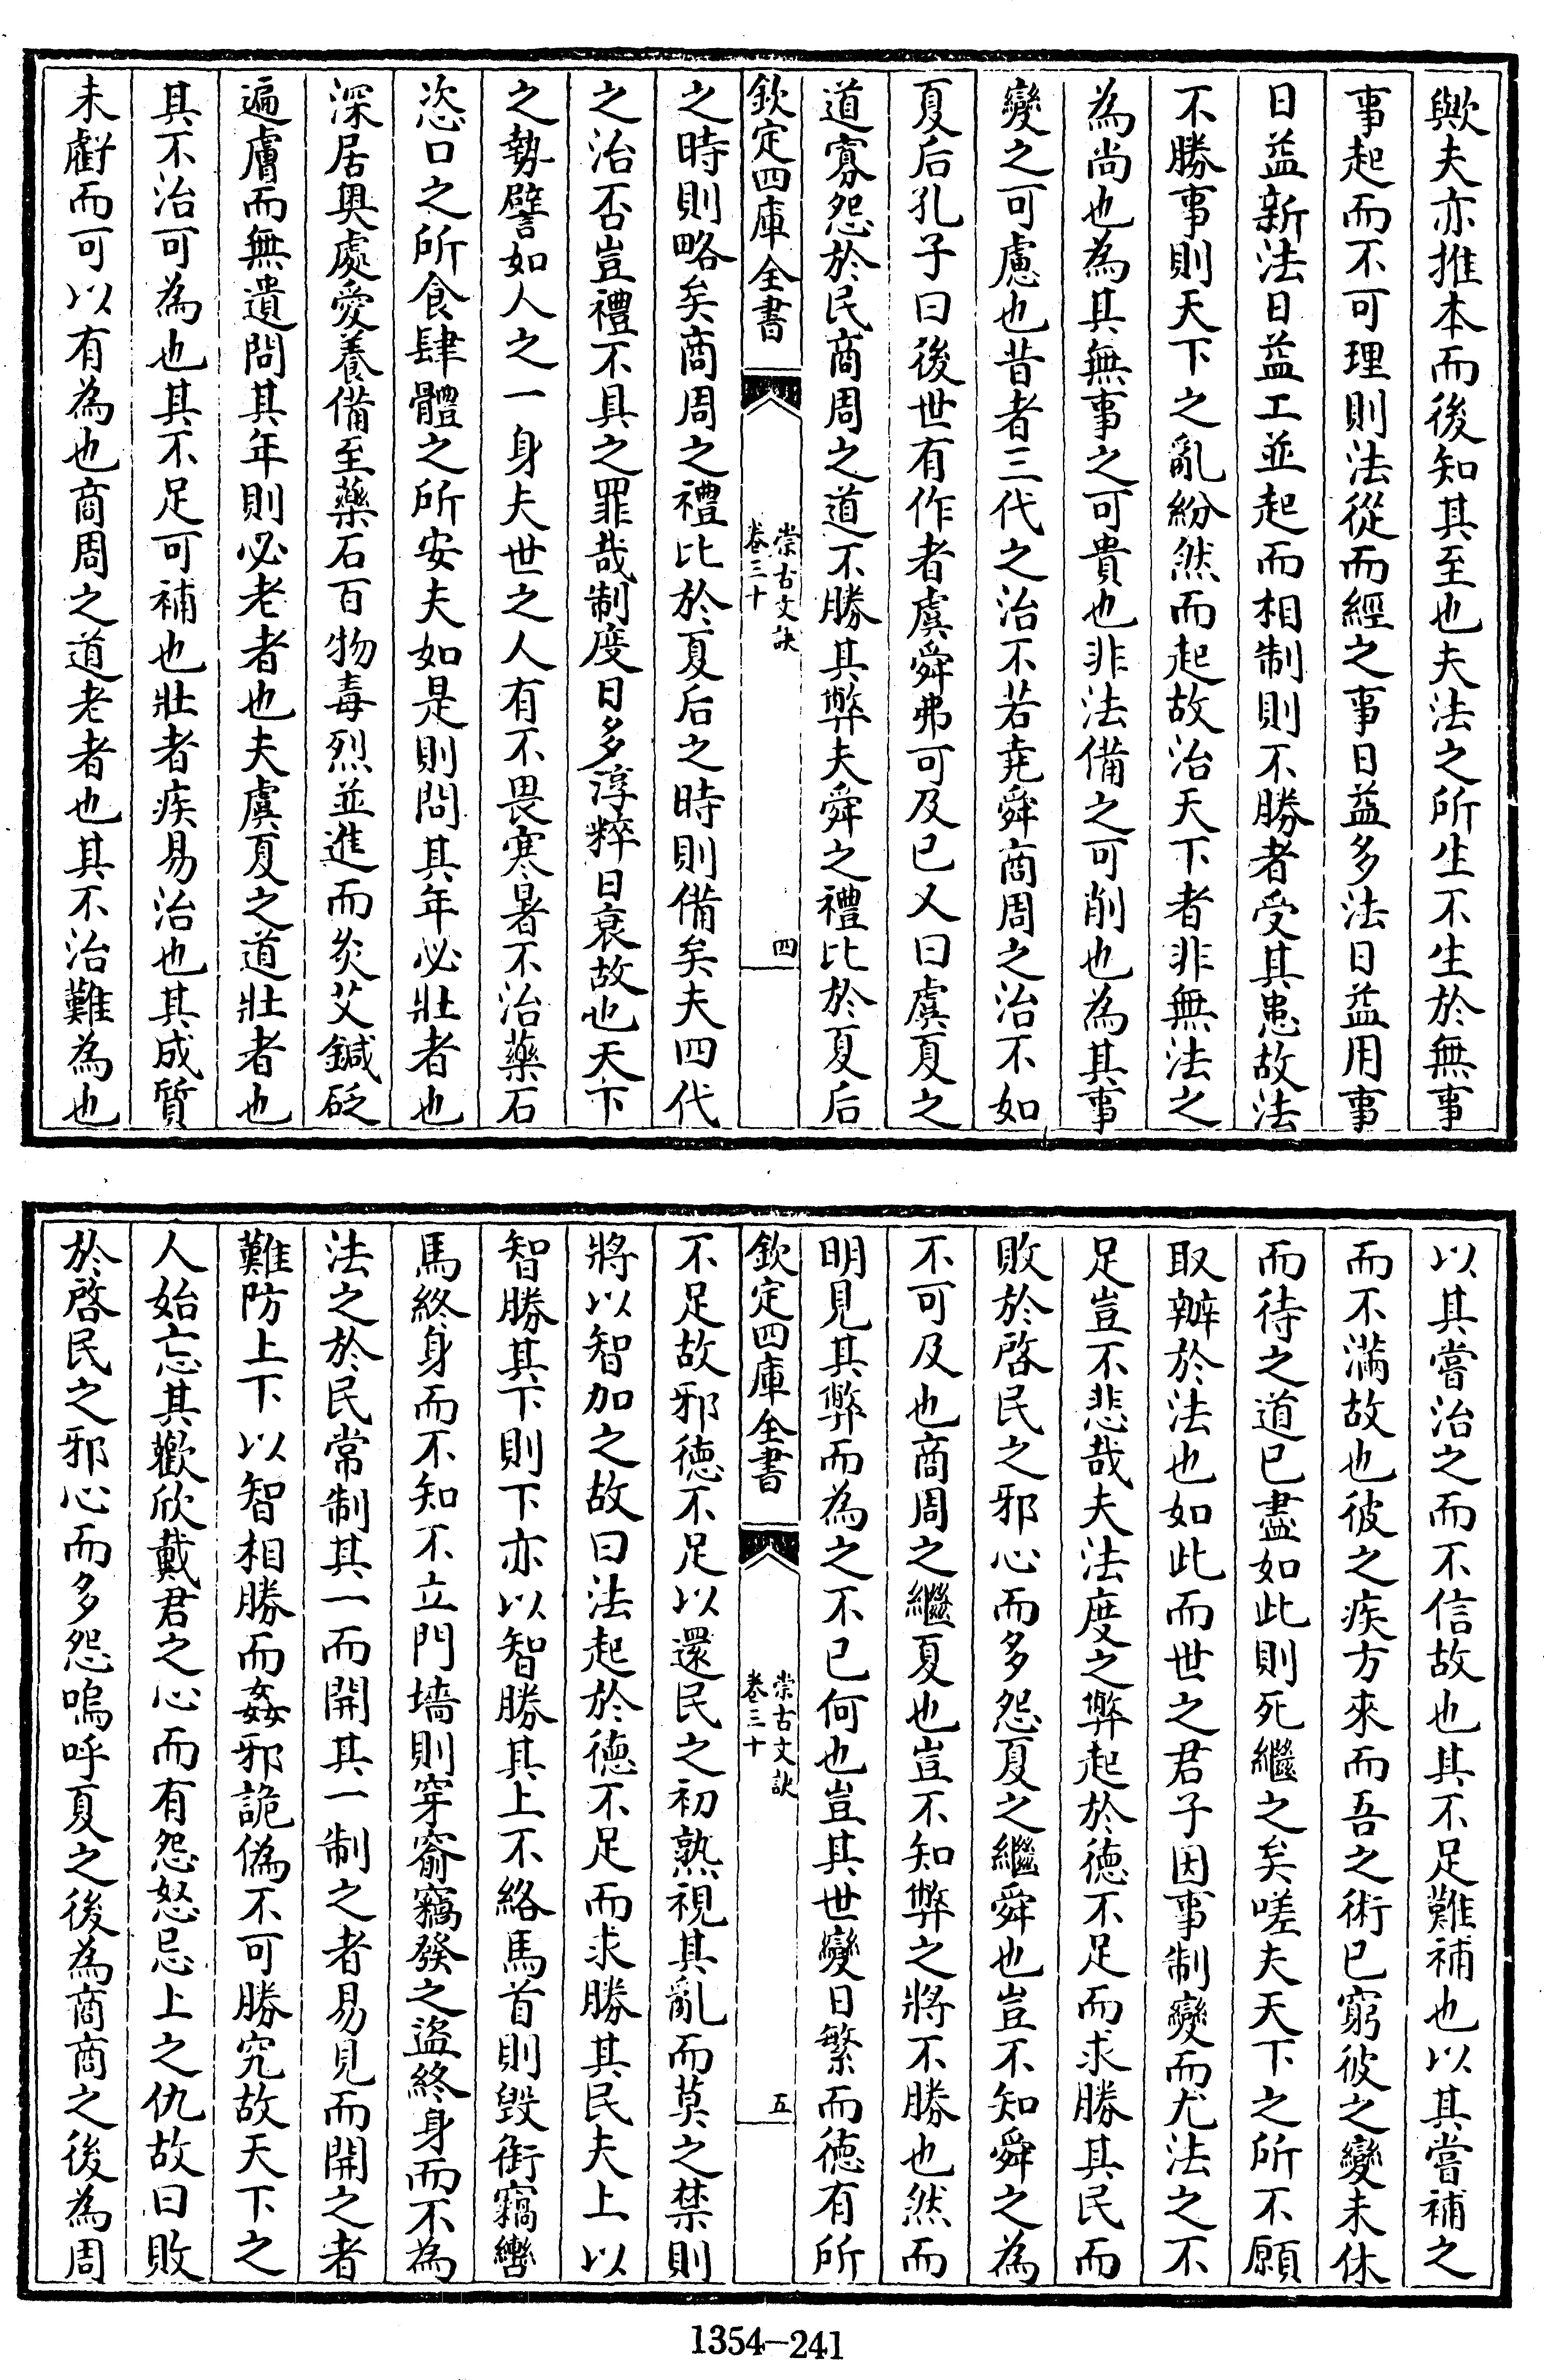 歟夫亦推本而後知其至也夫法之所生不生於無事
事起而不可理則法從而經之事日益多法日益用事
日益新法日益工並起而相制則不勝者受其患故法
不勝事則天下之亂紛然而起故治天下者非無法之
為尚也為其無事之可貴也非法備之可削也為其事
變之可慮也昔者三代之治不若堯舜商周之治不如
夏后孔子曰後世有作者虞舜弗可及已又曰虞夏之
道寡怨於民商周之道不勝其弊夫舜之禮比於夏后
欽定四庫全書
崇古文訣
卷三十
四
之時則略矣商周之禮比於夏后之時則備矣夫四代
之治否豈禮不具之罪哉制度日多淳粹日衰故也天下
之勢譬如人之一身夫世之人有不畏寒暑不治藥石
恣口之所食肆體之所安夫如是則問其年必壯者也
深居奥處愛養備至藥石百物毒烈並進而灸艾鍼砭
遍膚而無遺問其年則必老者也夫虞夏之道壯者也
其不治可為也其不足可補也壯者疾易治也其成質
未虧而可以有為也商周之道老者也其不治難為也
以其嘗治之而不信故也其不足難補也以其嘗補之
而不滿故也彼之疾方來而吾之術已窮彼之變未休
而待之道已盡如此則死繼之矣嗟夫天下之所不願
取辦於法也如此而世之君子因事制變而尤法之不
足豈不悲哉夫法度之弊起於徳不足而求勝其民而
敗於啓民之邪心而多怨夏之繼舜也豈不知舜之為
不可及也商周之繼夏也豈不知弊之將不勝也然而
明見其弊而為之不已何也豈其世變日繁而徳有所
欽定四庫全書
崇古文訣
卷三十
五
不足故邪徳不足以還民之初熟視其亂而莫之禁則
將以智加之故曰法起於徳不足而求勝其民夫上以
智勝其下則下亦以智勝其上不絡馬首則毁銜竊轡
馬終身而不知不立門墻則穿窬竊發之盜終身而不為
法之於民常制其一而開其一制之者易見而開之者
難防上下以智相勝而姦邪詭偽不可勝究故天下之
人始忘其歡欣戴君之心而有怨怒忌上之仇故曰敗
於啓民之邪心而多怨嗚呼夏之後為商商之後為周
1354-241